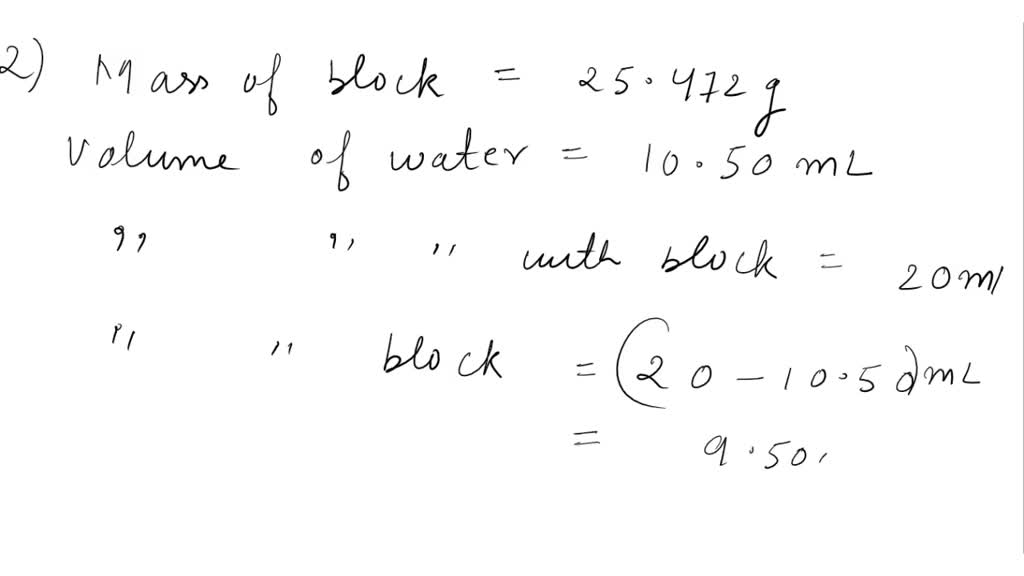 2) Mass of block = 25.472 g
Volume of water = 10.50 mL
,, ,, ,, with block = 20ml
,, ,, block = (20 - 10.50) mL
= 9.50